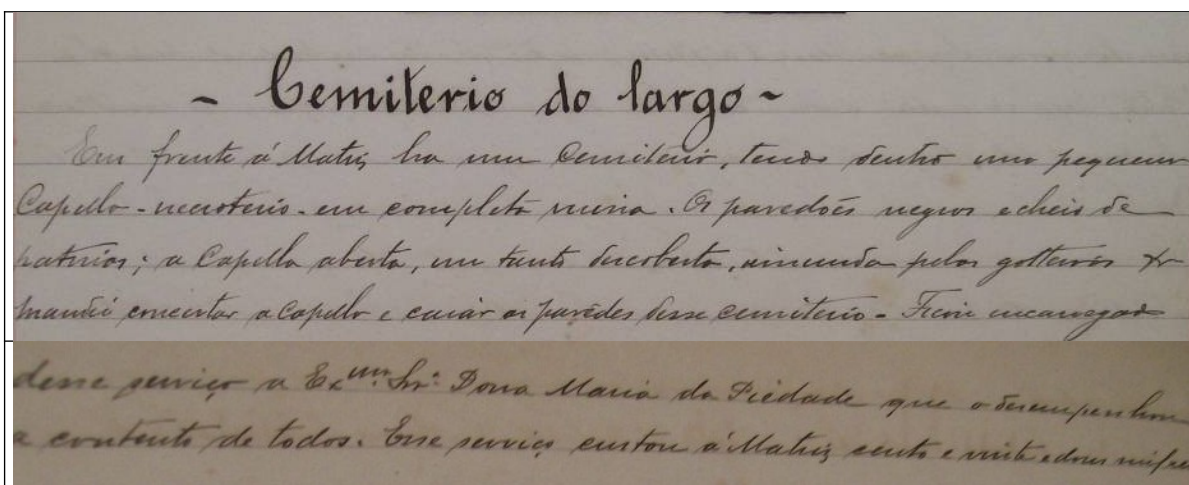 - Cemiterio do largo -
Em frente á Matriz ha um Cemiterio, tendo dentro uma pequena
Capella - necroterio - em completa ruina. Os paredões negros e cheis de
; a Capella aberta, um tanto descoberta, immunda pelas gotteiras &
mandei concertar a Capella e caiar as parêdes desse cemiterio - Ficou encarregada
desse serviço a Exma. Snra. Dona Maria da Piedade que o desempenhou
a contento de todos. Esse serviço custou á Matriz cento e vinte e dous mil reis